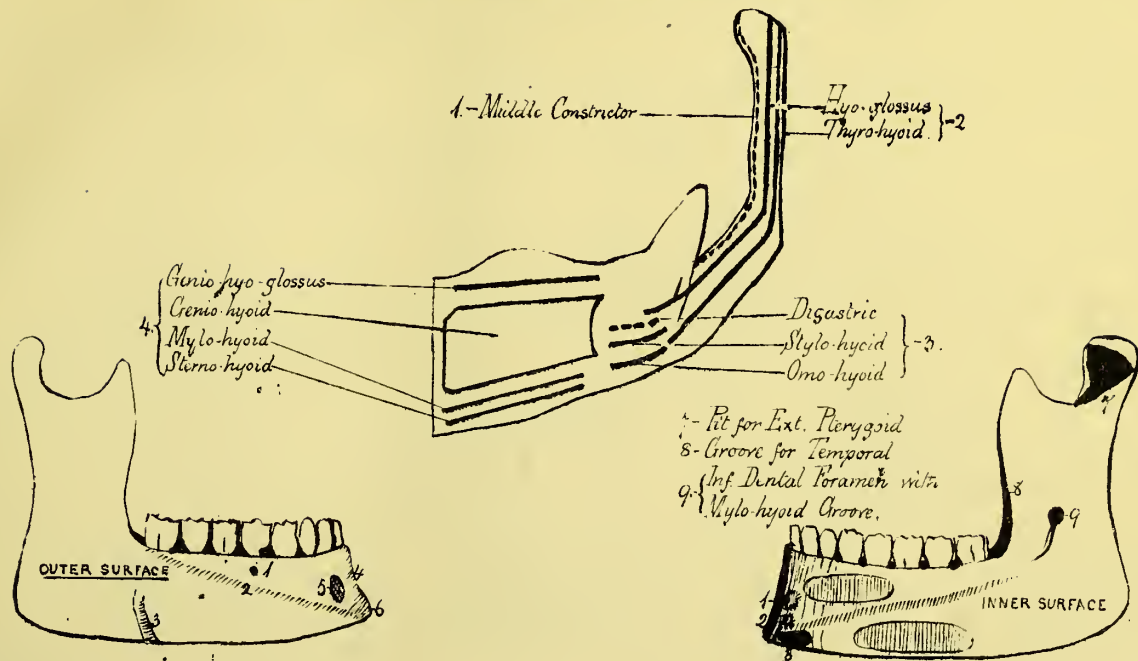 1.- Middle Constrictor
Hyo-glossus
Thyro-hyoid. }-2
Genio-hyo-glossus
4. { Genio-hyoid
Mylo-hyoid
Sterno-hyoid
Digastric
Stylo-hyoid }-3.
Omo-hyoid
7- Pit for Ext. Pterygoid
8- Groove for Temporal
9.{ Inf. Dental Foramen with
Mylo-hyoid Groove.
OUTER SURFACE
1
2
3
4
5
6
7
8
9
1
2
INNER SURFACE